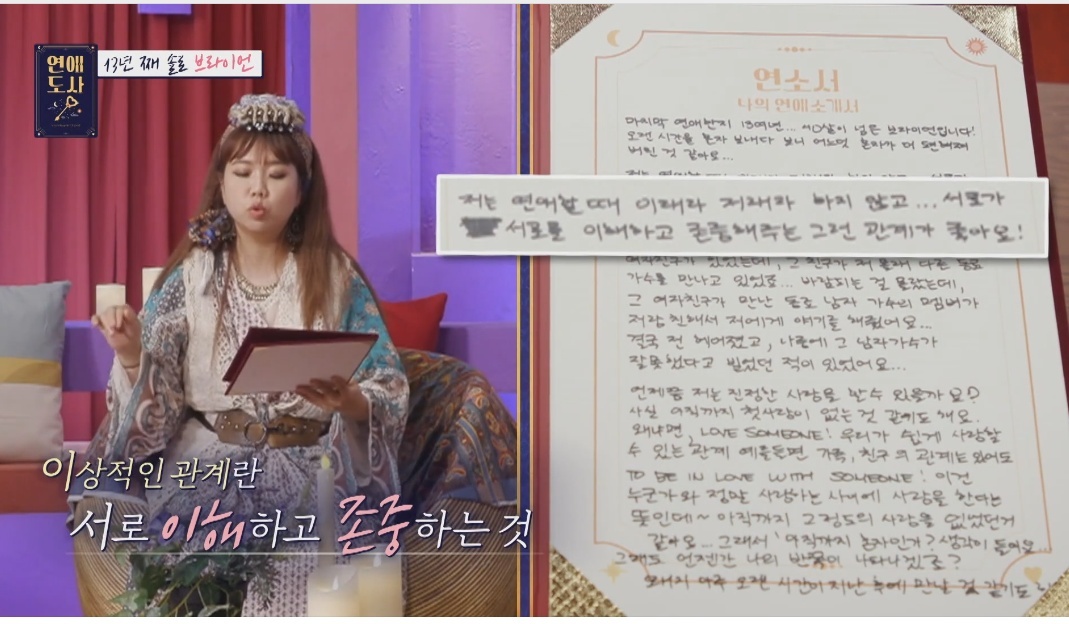 연애
도사
13년 째 솔로 브라이언
이상적인 관계란
서로 이해하고 존중하는 것
연소서
나의 연애소개서
마지막 연애한지 13여년... 40살이 넘은 브라이언입니다!
오랜 시간을 혼자 보내다 보니 어느덧 혼자가 더 편해져
버린 것 같아요...
저는 연애할 때 이래라 저래라 하지 않고... 서로가
서로를 이해하고 존중해주는 그런 관계가 좋아요!
여자친구가 있었는데, 그 친구가 저 몰래 다른 동료
가수를 만나고 있었죠... 바람피는 걸 몰랐는데,
그 여자친구가 만난 동료 남자 가수의 멤버가
저랑 친해서 저에게 얘기를 해줬어요...
결국 전 헤어졌고, 나중에 그 남자가수가
잘못했다고 빌었던 적이 있었어요...
언제쯤 저는 진정한 사랑을 할 수 있을까요?
사실 아직까지 첫사랑이 없는 것 같기도 해요.
왜냐면, LOVE SOMEONE! 우리가 쉽게 사랑할
수 있는 관계 예를들면 가족, 친구의 관계는 있어도
TO BE IN LOVE WITH SOMEONE! 이건
누군가와 정말 사랑하는 사이에 사랑을 한다는
뜻인데~ 아직까지 그정도의 사랑은 없었던거
같아요... 그래서 '아직까지 혼자인가? 생각이 들어요
그래도 언젠간 나의 반쪽이 나타나겠죠?
왠지 아주 오랜 시간이 지난 후에 만날 것 같기도